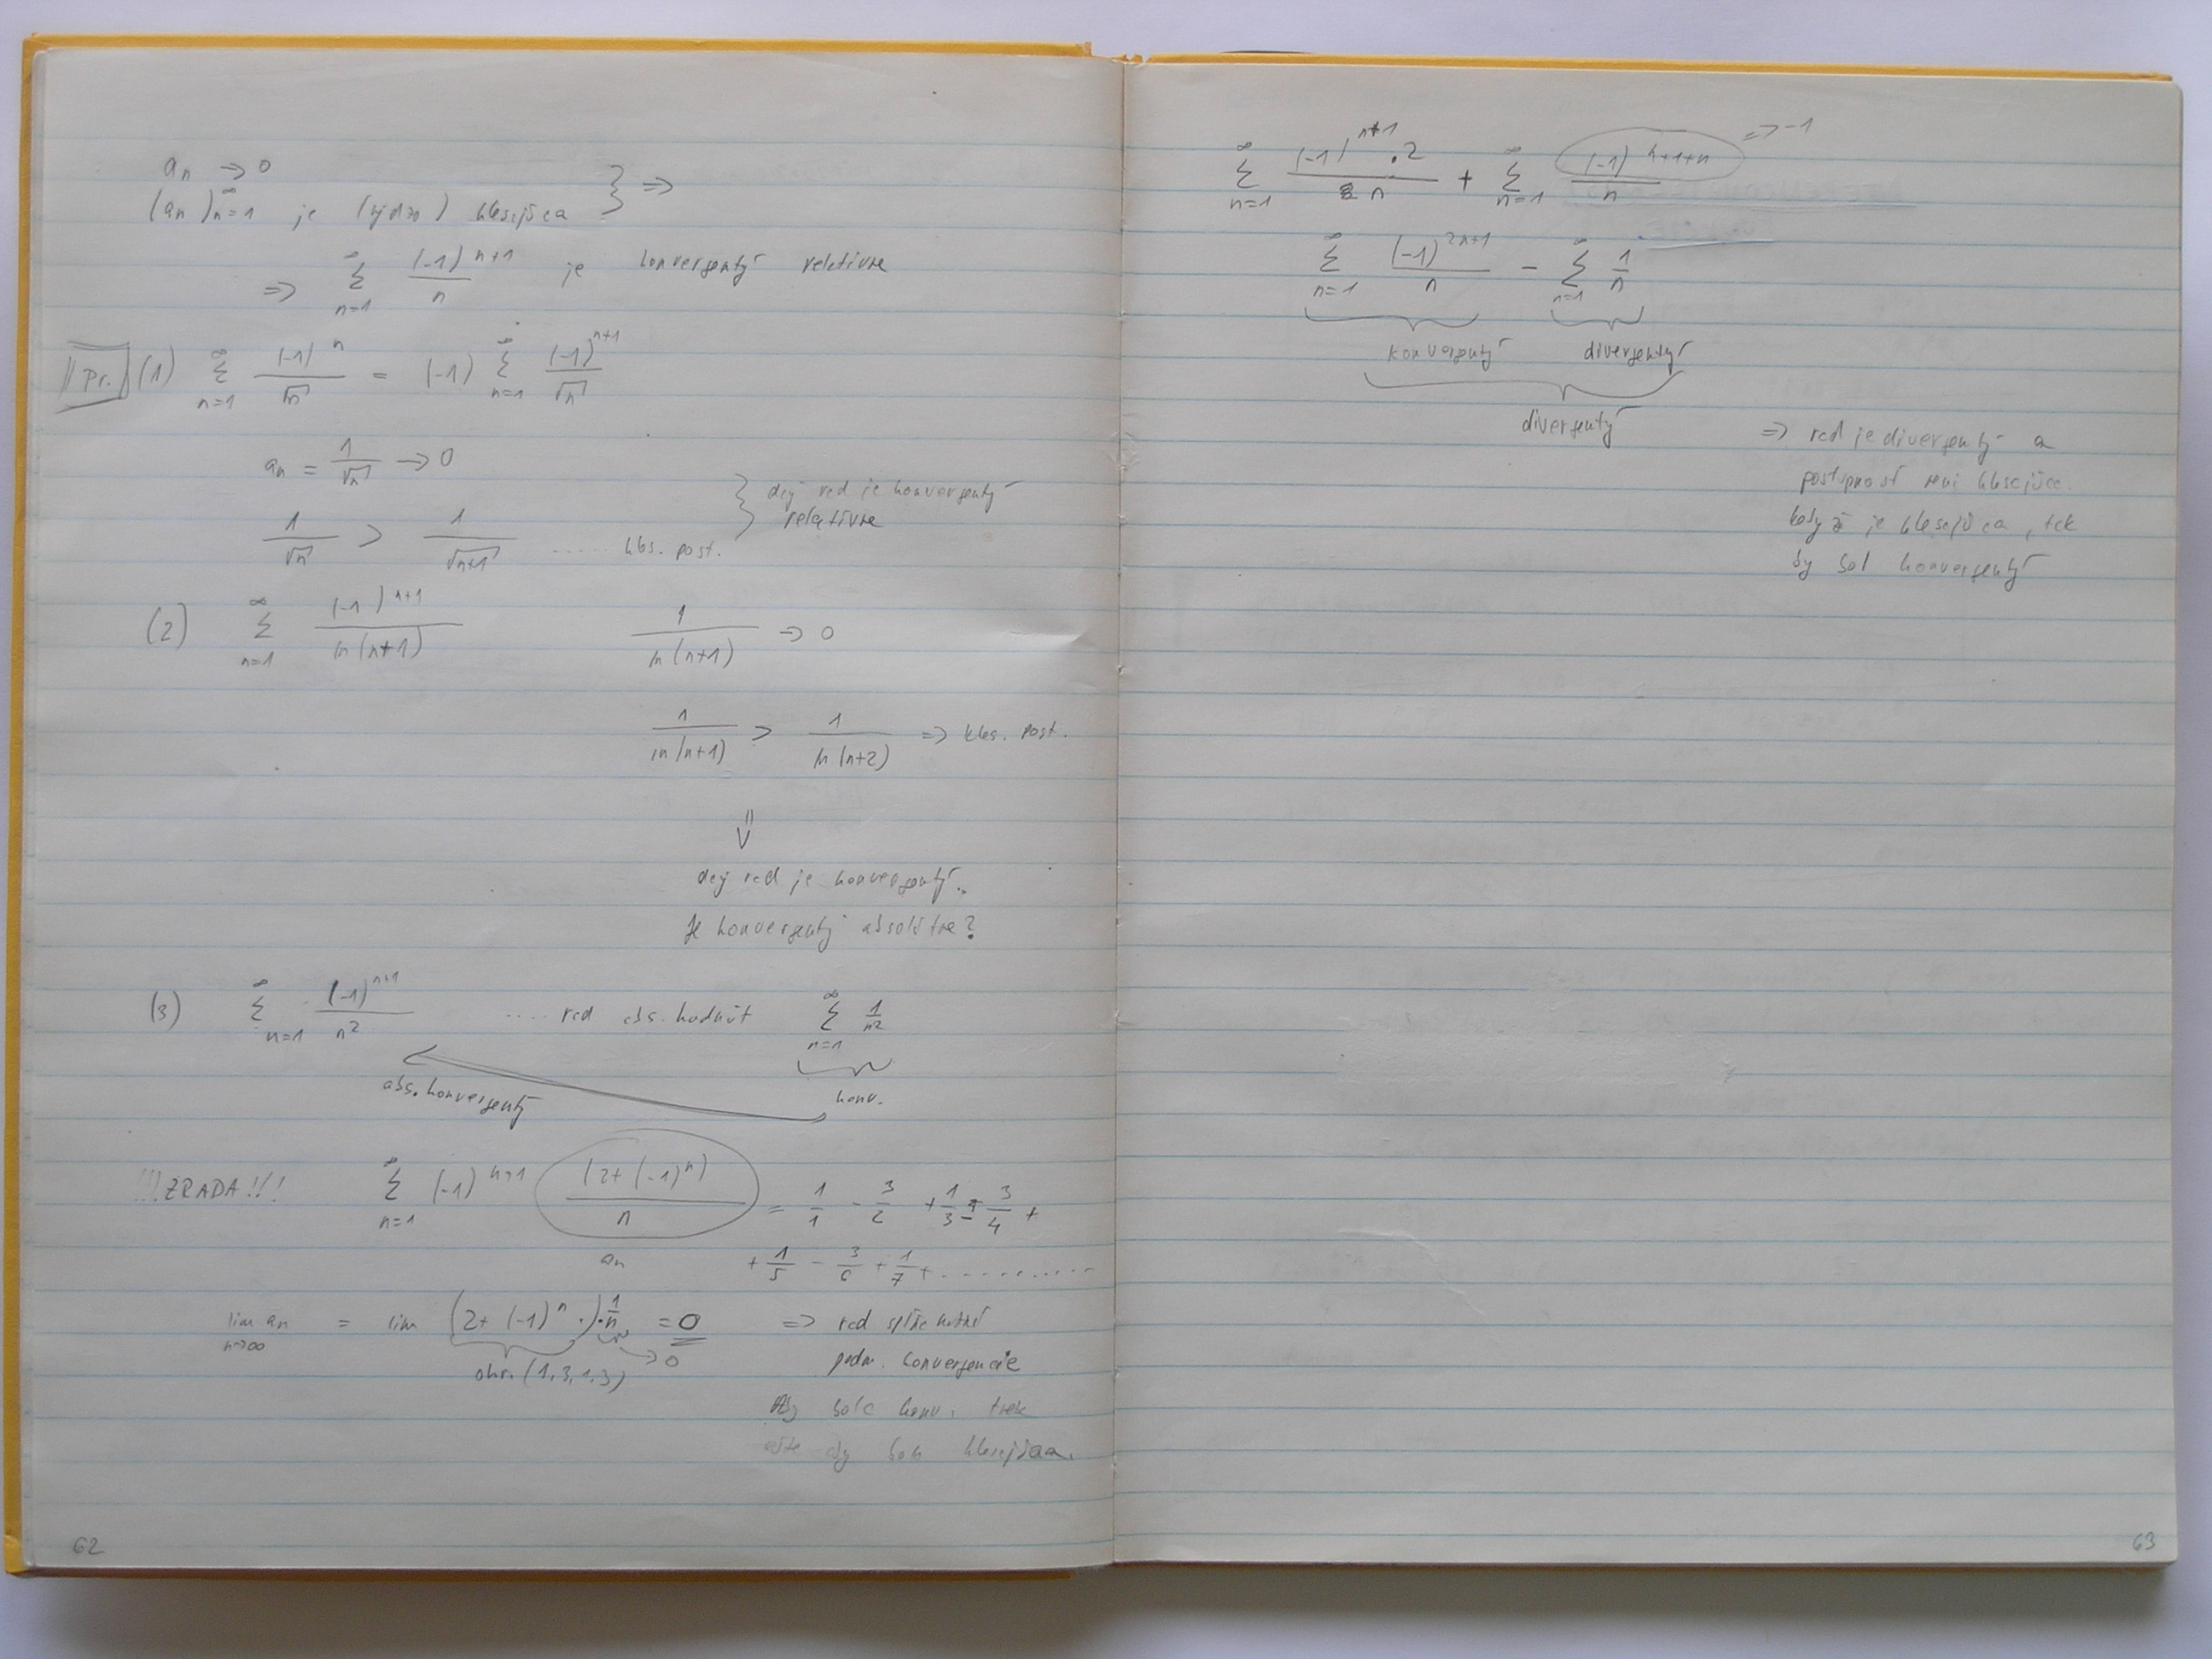 aₙ → 0
(aₙ)ₙ₌₁^∞ je (rýdzo) klesajúca } ⇒
⇒ ∑ₙ₌₁^∞ (-1)^(n+1) / n je konvergentý relatívne
Pr. (1) ∑ₙ₌₁^∞ (-1)^n / √n = (-1) ∑ₙ₌₁^∞ (-1)^(n+1) / √n
aₙ = 1/√n → 0
1/√n > 1/√(n+1) ..... kles. post.
} daný rad je konvergentý
relatívne
(2) ∑ₙ₌₁^∞ (-1)^(n+1) / ln(n+1) 1 / ln(n+1) → 0
1 / ln(n+1) > 1 / ln(n+2) ⇒ kles. post.
⇓
daný rad je konvergentý.
Je konvergentý absolútne?
(3) ∑ₙ₌₁^∞ (-1)^(n+1) / n² .... rad abs. hodnôt ∑ₙ₌₁^∞ 1/n²
abs. konvergentý konv.
!!! ZRADA !!! ∑ₙ₌₁^∞ (-1)^(n+1) (2+(-1)^n) / n = 1/1 - 3/2 + 1/3 - 3/4 +
aₙ + 1/5 - 3/6 + 1/7 + ..........
lim n→∞ aₙ = lim (2+(-1)^n) · 1/n = 0 ⇒ rad spĺňa nutnú
ohr. (1,3,1,3) → 0 podm. konvergencie
Aby bola konv. treba
ešte aby bola klesajúca.
62
∑ₙ₌₁^∞ (-1)^(n+1) · 2 / n + ∑ₙ₌₁^∞ (-1)^(n+1+n) / n ⇒ -1
∑ₙ₌₁^∞ (-1)^(2n+1) / n - ∑ₙ₌₁^∞ 1/n
konvergentý divergentý
divergentý
⇒ rad je divergentý a
postupnosť neni klesajúca.
keby je klesajúca, tak
by bol konvergentý
63